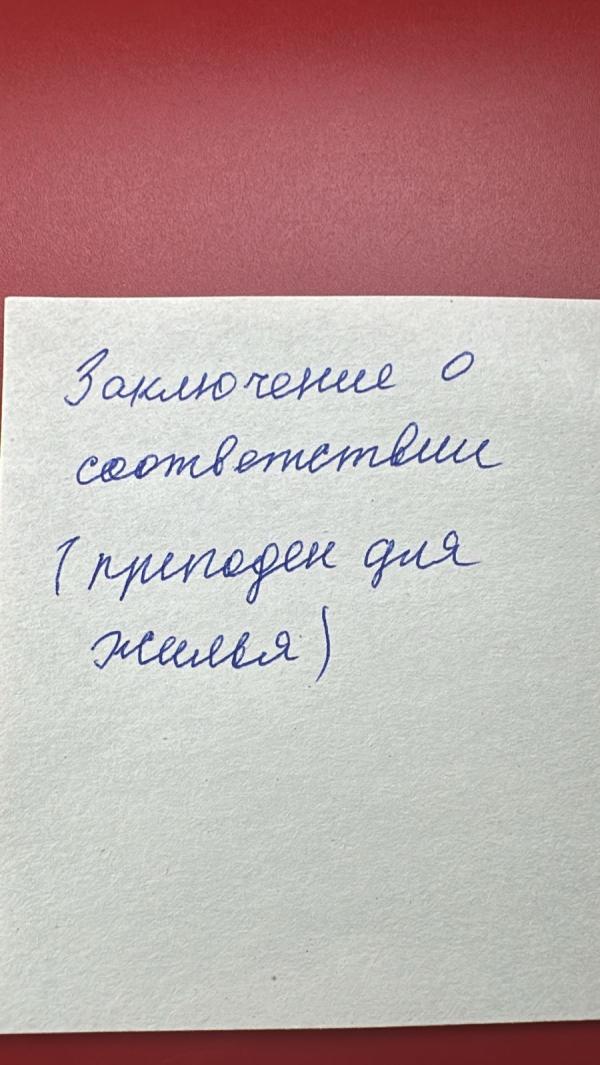 Заключение о
соответствии
(пригоден для
жилья)